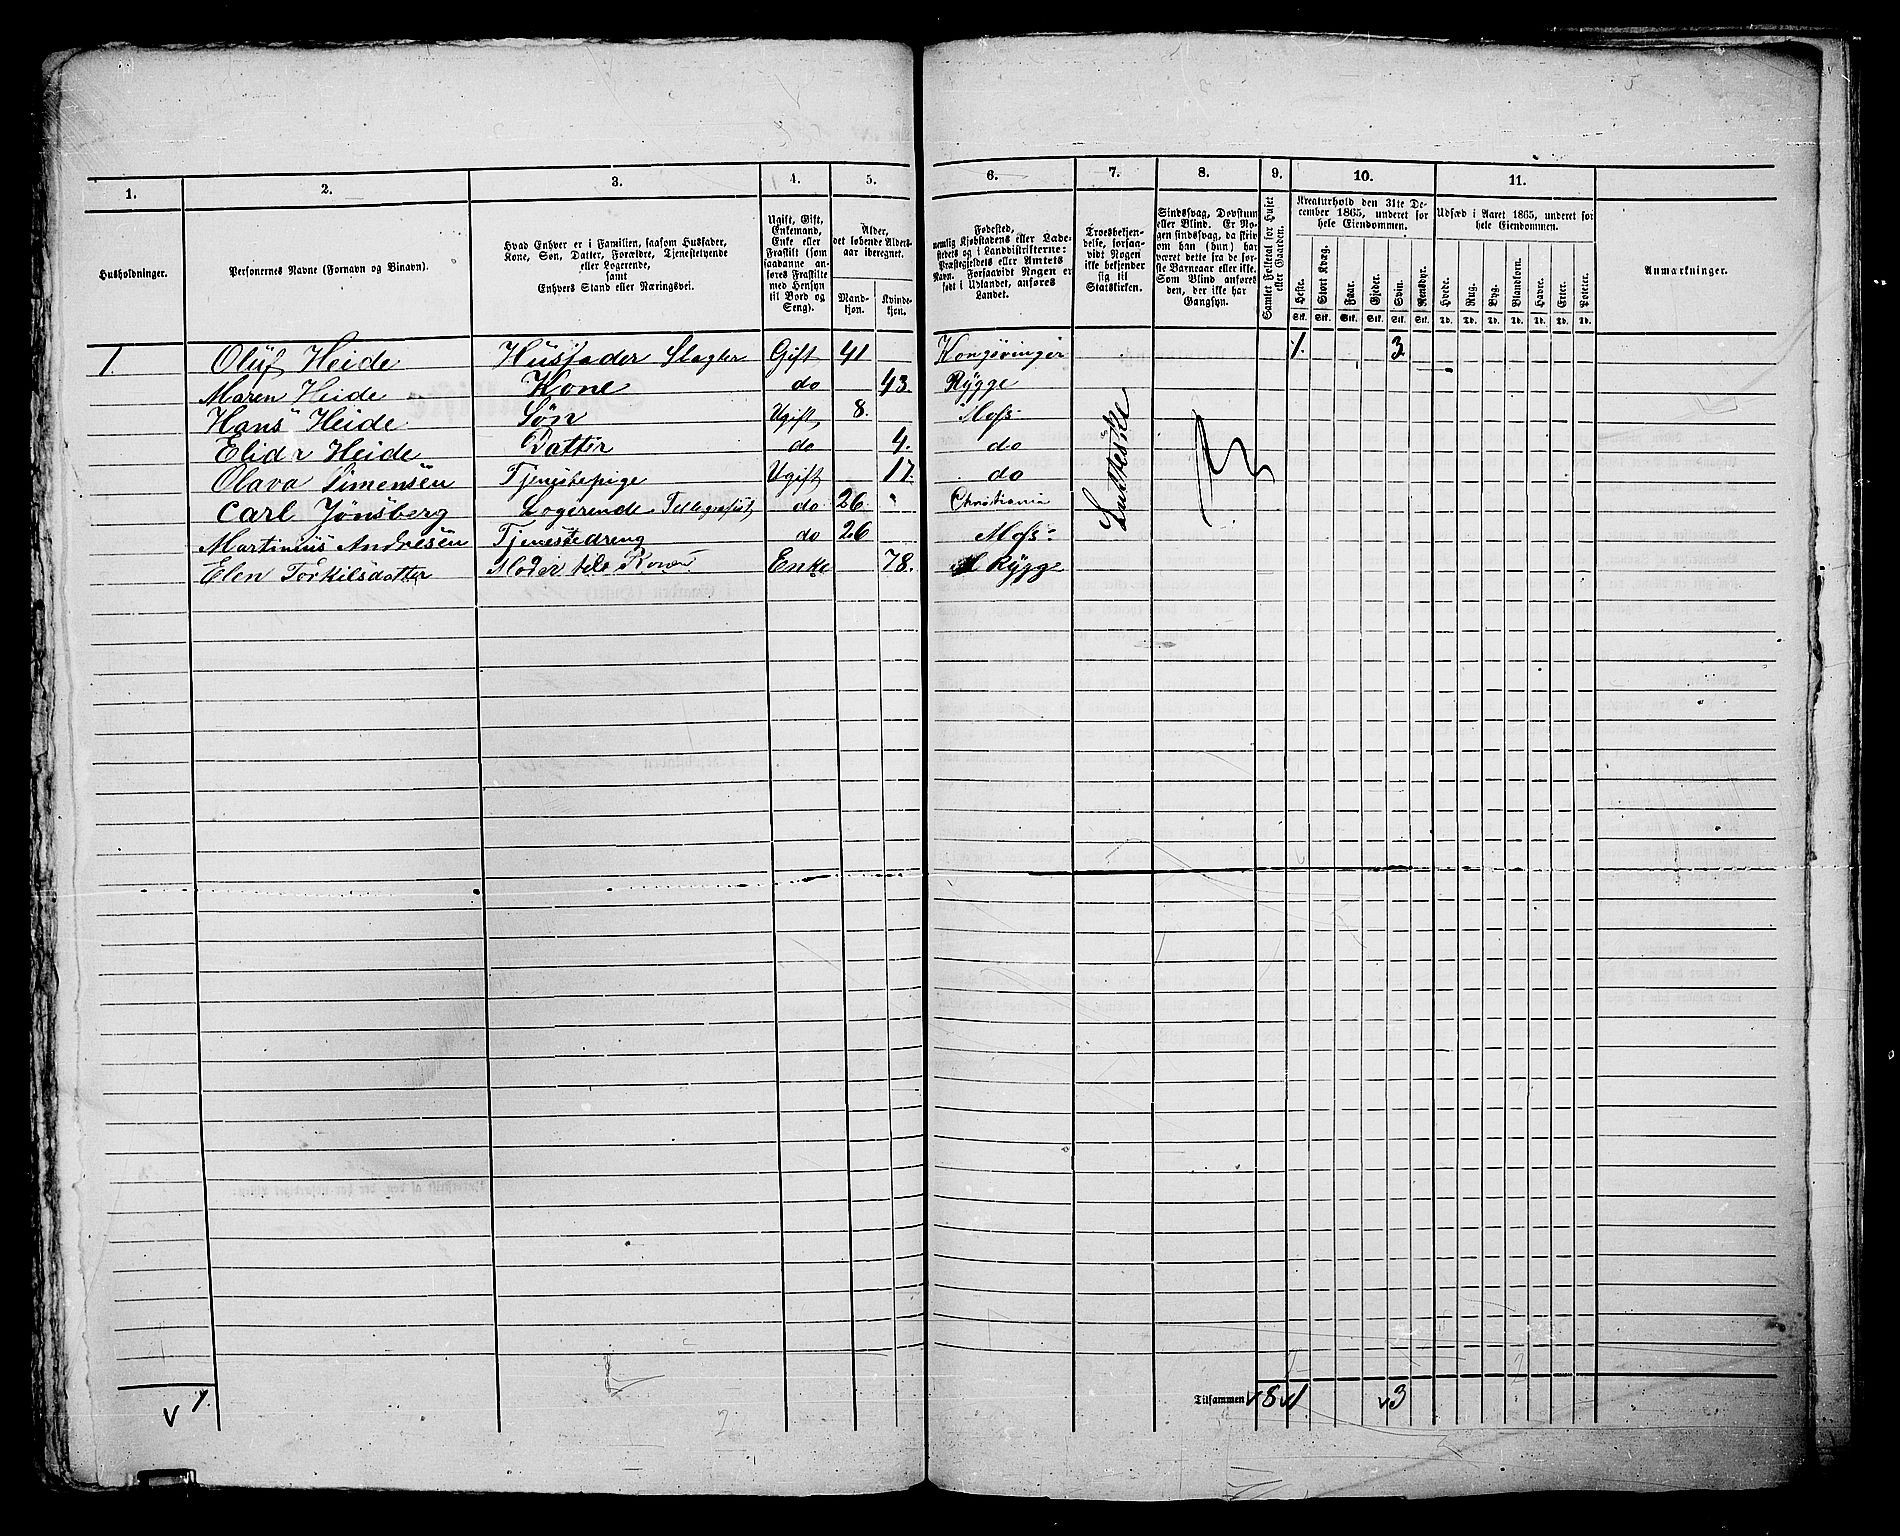 1. 2. 3. 4. 5. 6. 7. 8. 9. 10. 11.
Husholdninger.
Personernes Navne (Fornavn og Binavn).
Hvad Enhver er i Familien, saasom Husfader,
Kone, Søn, Datter, Forældre, Tjenestetyende
eller Logerende,
samt
Enhvers Stand eller Næringsvei.
Ugift, Gift,
Enkemand,
Enke eller
Fraskilt (som
saadanne an-
føres Fraskilte
med Hensyn
til Bord og
Seng).
Alder,
det løbende Alders-
aar iberegnet.
Mand-
kjøn.
Kvinde-
kjøn.
Fødested,
nemlig Kjøbstadens eller Lade-
stedets og i Landdistrikterne:
Præstegjeldets eller Amtets
Navn. Forsaavidt Nogen er
født i Udlandet, anføres
Landet.
Troesbekjen-
delse, forsaa-
vidt Nogen
ikke bekjender
sig til
Statskirken.
Sindssvag, Døvstum
eller Blind. Er No-
gen sindssvag, da skriv
om han (hun) har
været dette fra de før-
ste Barneaar eller ikke.
Som Blind anføres
den, der ikke har
Gangsyn.
Samlet Folketal for Huset
eller Gaarden.
Kreaturhold den 31te De-
cember 1865, underet for
hele Eiendommen.
Heste. Stort Kvæg. Faar. Gjeder. Svin. Rensdyr.
Stk. Stk. Stk. Stk. Stk. Stk.
Udsæd i Aaret 1865, underet for
hele Eiendommen.
Hvede. Rug. Byg. Blandkorn. Havre. Erter. Poteter.
Td. Td. Td. Td. Td. Td. Td.
Anmærkninger.
1. Oluf Heide Husfader Slagter Gift 41 Kongsvinger 1. 3
Maren Heide Kone do 43. Rygge
Hans Heide Søn Ugift 8. Moss
Heide Datter do 4. do
Olava Simensen Tjenestepige Ugift 17. do
Carl Jønsberg Logerende Tellegrafist do 26 " Christiania
Martinius Andresen Tjenestedreng do 26 Moss
Elen Torkilsdatter Moder til Konen Enke 78. Rygge
Lutterske
1. Tilsammen 8 1 3